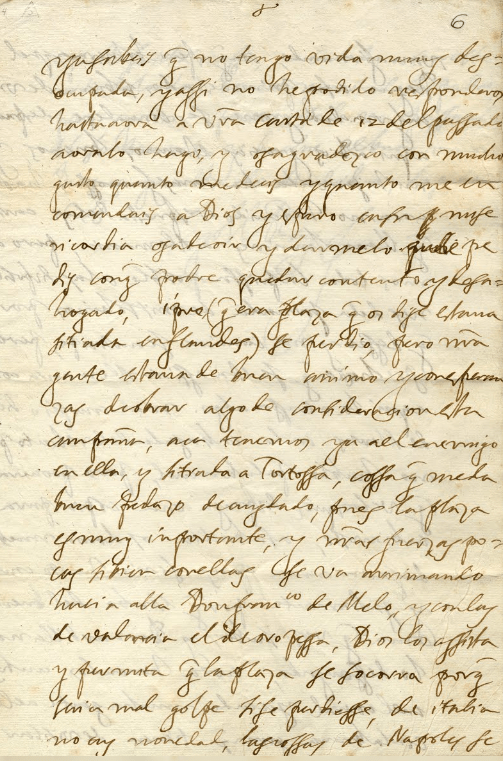 6
ya sabeys q̃ no tengo vida muy des=
ocupada, y assi no he podido responderos
hasta aora a vr̃a carta de 12 del passado
aoralo hago, y os agradezco con mucho
gusto quanto me decis y quanto me en
comendais a Dios y espero en su mise
ricordia os a de oir y darmelo que le pe
dis conq̃ podre quedar contento y desa=
hogado, ipre (q̃ era plaza q̃ os dije estaua
sitiada en flandes) se perdio, pero mr̃a
gente estaua de buen animo y con esperan
zas de obrar algo de consideracion esta
campaña, aca tenemos ya al enemigo
en ella, y sitiada a Tortossa, cossa q̃ me da
buen pedazo de cuydado, pues la plaza
es muy importante, y nr̃as fuerzas po=
cas si bien con ellas se va arrimando
hacia alla Don franco de Melo, y con las
de valencia el de oropessa, Dios los assista
y permita q̃ la plaza se socorra porq̃
seria mal golpe si se perdiesse, de italia
no ay nouedad, las cossas de Napoles se